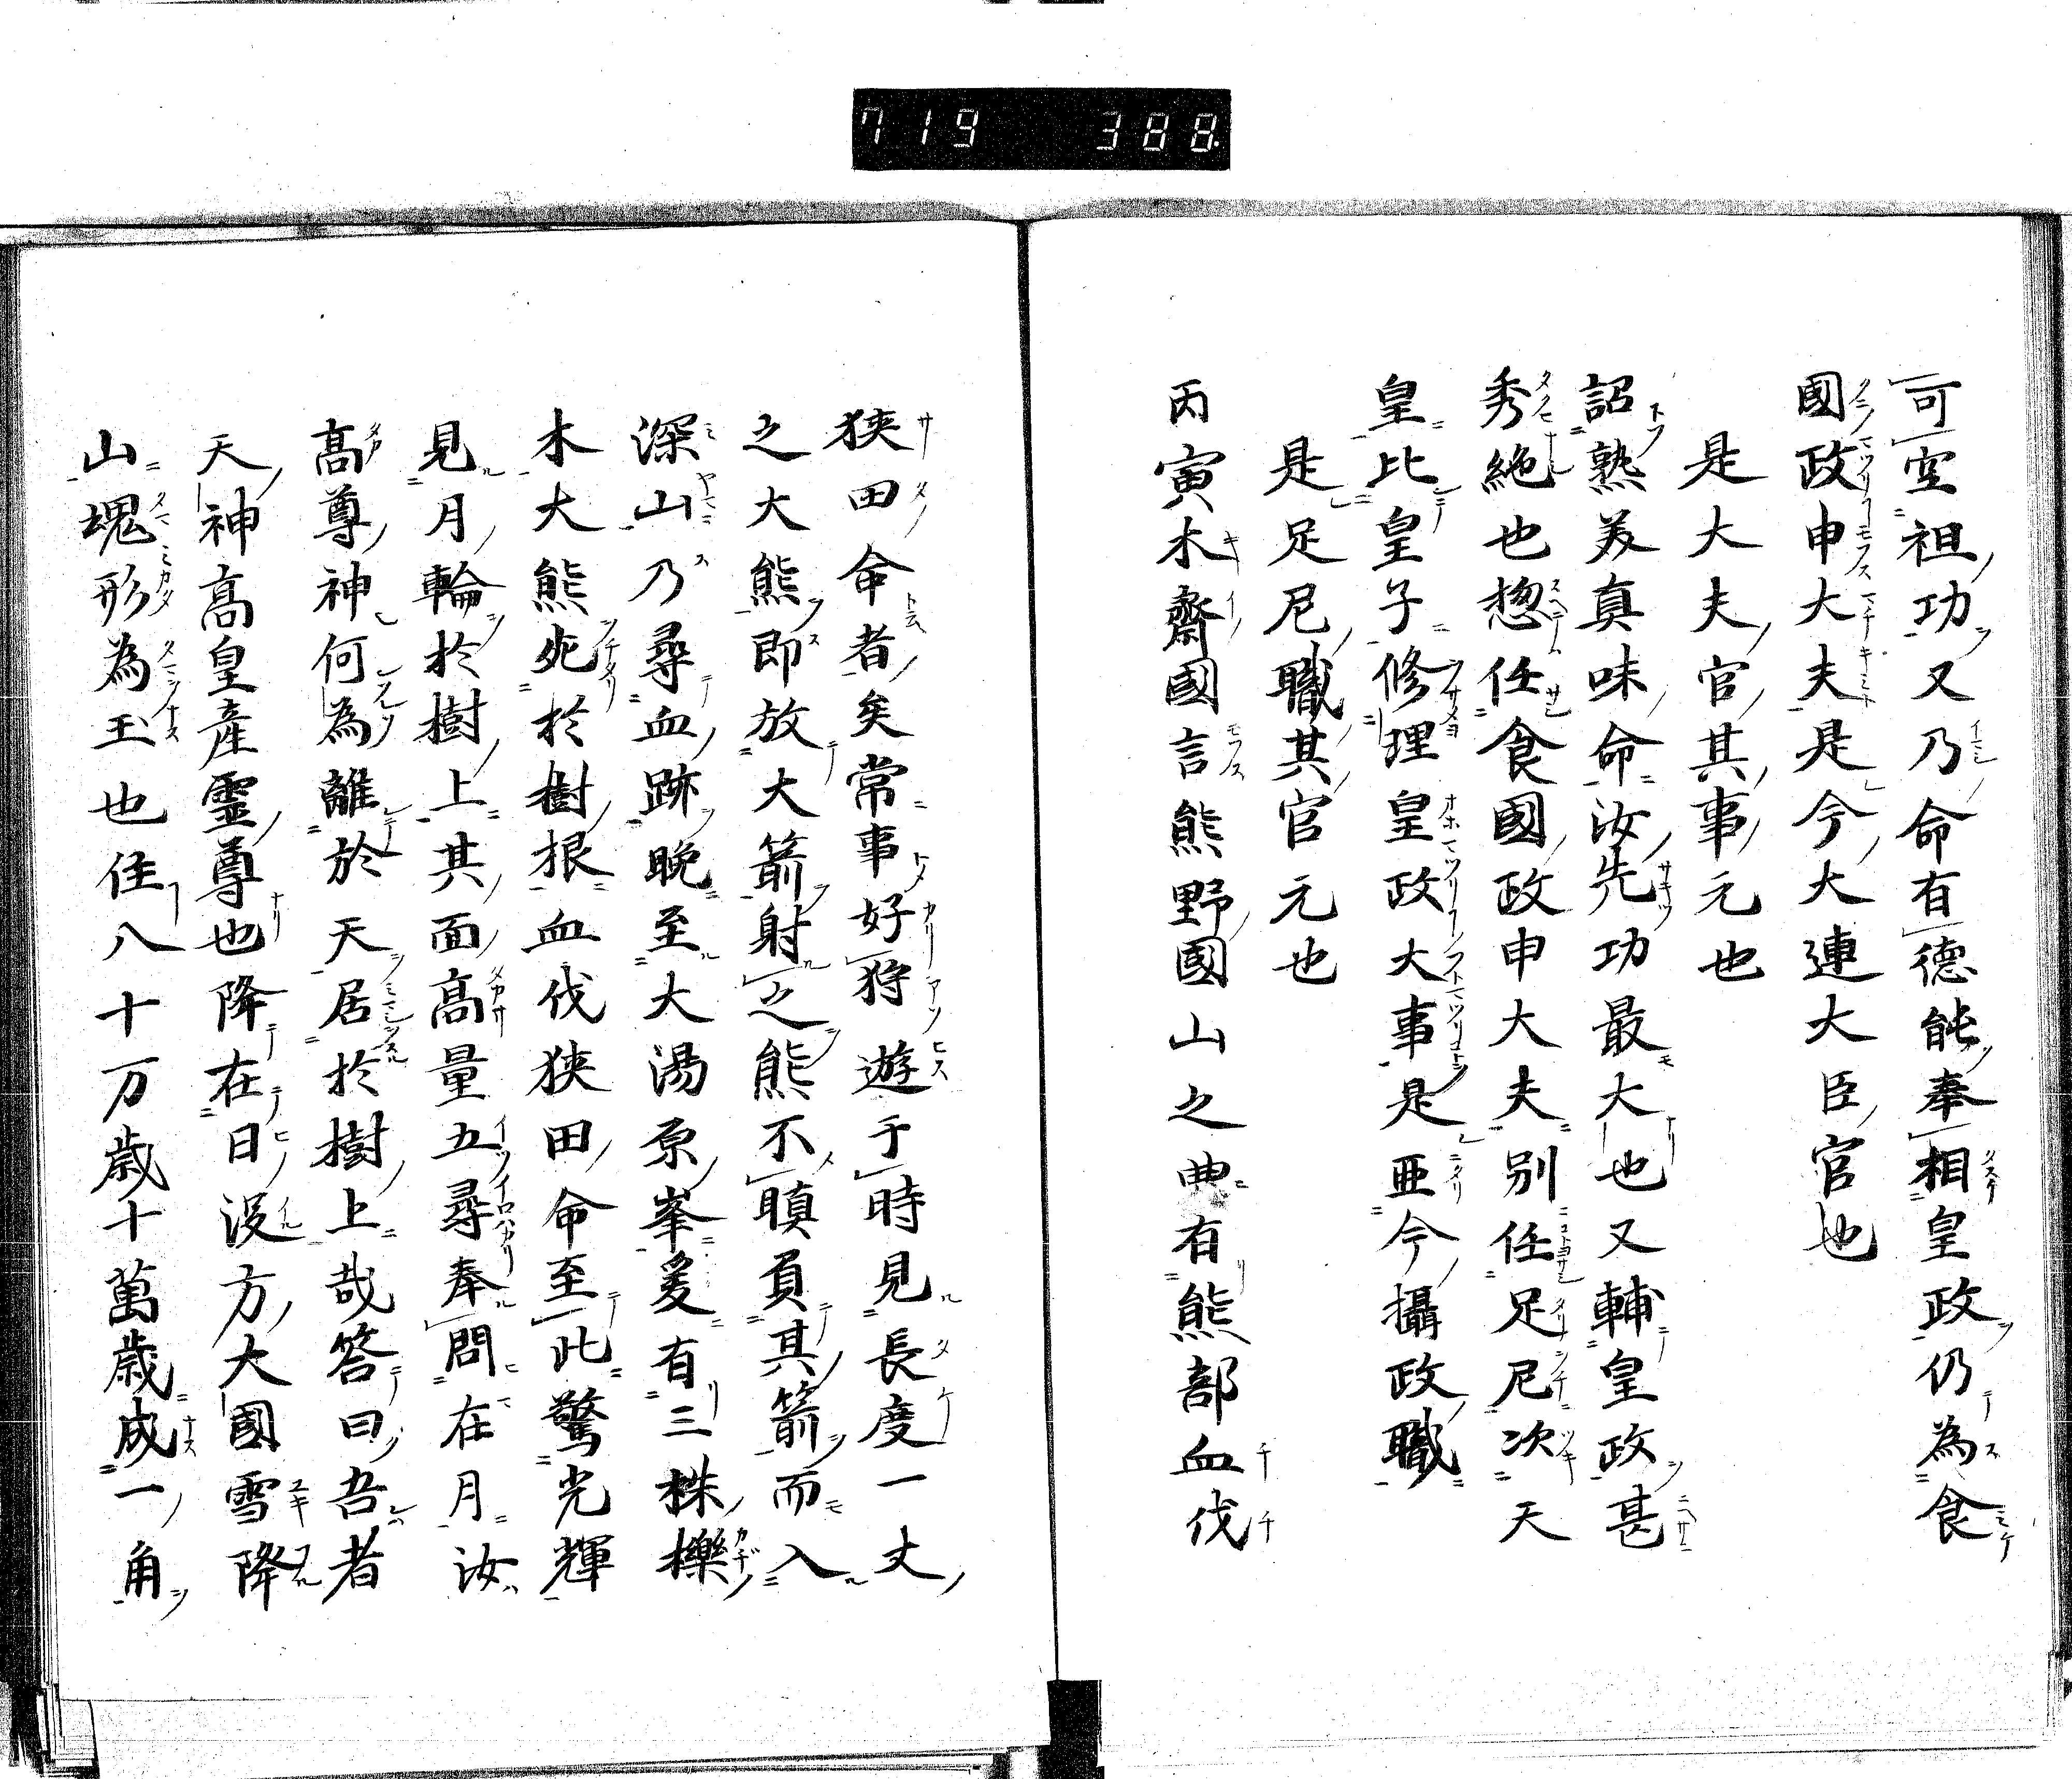 719 388
可空祖功又乃命有德能奉相皇政仍為食
國政申大夫是今大連大臣官也
是大夫官其事元也
詔熟美真味命汝先功最大也又輔皇政甚
秀絶也惣任食國政申大夫別任足尼次天
皇比皇子修理皇政大事是亜今攝政職
是足尼職其官元也
丙寅木齋國言熊野國山之典有熊部血伐
狭田命者矣常事好狩遊于時見長度一丈
之大熊即放大箭射之熊不瞋負其箭而入
深山乃尋血跡晩至大湯原峯爰有三株櫟
木大熊死於樹根血伐狭田命至此驚光輝
見月輪於樹上其面髙量五尋奉問在月汝
髙尊神何為離於天居於樹上哉答曰吾者
天神髙皇産霊尊也降在日没方大國雪降
山塊形為玉也住八十万歳十萬歳成一角